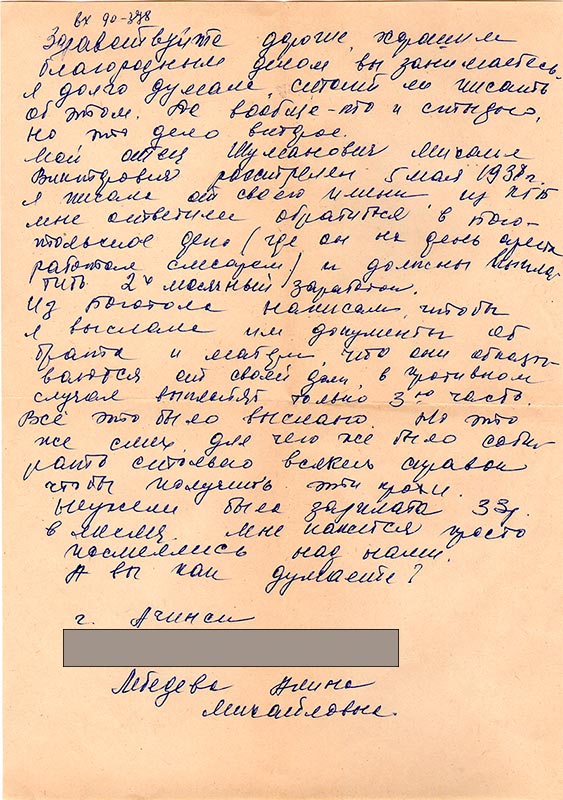 вх 90-378
Здравствуйте дорогие, хорошим
благородным делом вы занимаетесь.
Я долго думала, стоит ли писать
об этом. Да вообще-то и стыдно,
но это дело второе.
Мой отец Шуманович Михаил
Викторович расстрелян 5 мая 1938г.
Я писала от своего имени, из КГБ
мне ответили обратиться в Бого-
тольское депо (где он на день ареста
работал слесарем) и должны выпла-
тить 2х месячный заработок.
Из Боготола написали, чтобы
я выслала им документы об
брата и матери, что они отказы-
ваются от своей доли, в противном
случае выплатят только 3ю часть.
Всё это было выслано. Но это
же смех, для чего же было соби-
рать столько всяких справок
чтобы получить эти крохи.
Неужели была зарплата 33р.
в месяц. Мне кажется просто
посмеялись над нами.
А вы как думаете?
г. Ачинск
Лебедева Алина
Михайловна.